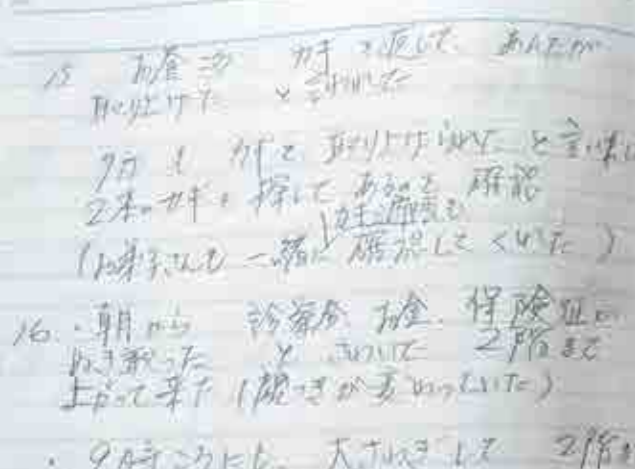 15 お昼ごろ カギを返して あんたが
取り上げた と言われた
夕方も カギを取り上げられたと言い出し
2本のカギを探してあるのを確認
(お弟子さんも一緒に確認してくれた)
16.・朝から 診察券、お金、保険証を
抜き取った と さわいで 2階まで
上がって来た(顔つきが変わっていた)
・9時ごろにも 大さわぎして 2階